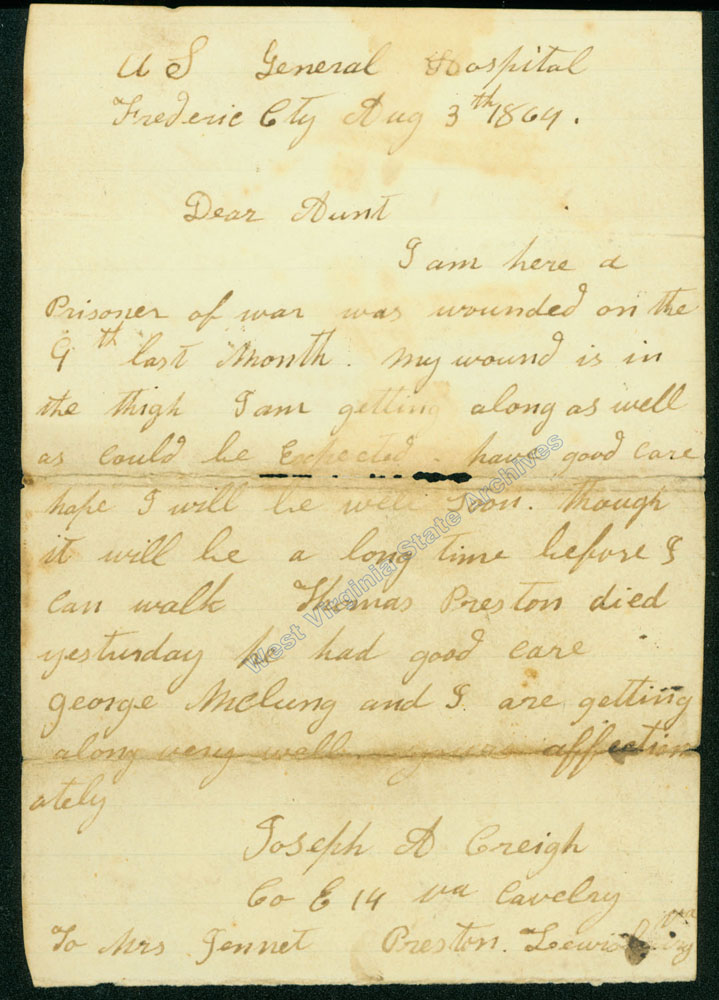 U S General Hospital
Frederic Cty Aug 3th 1864.
Dear Aunt
I am here a
Prisoner of war was wounded on the
9th last Month. my wound is in
the thigh I am getting along as well
as could be Expected. have good care
hope I will be well soon. though
it will be a long time before I
can walk Thomas Preston died
yesturday he had good care
george McClung and I are getting
along very well. yours affection
ately
Joseph A Creigh
Co E 14 va Cavelry
To Mrs Jennet Preston. Lewisburg
va
West Virginia State Archives